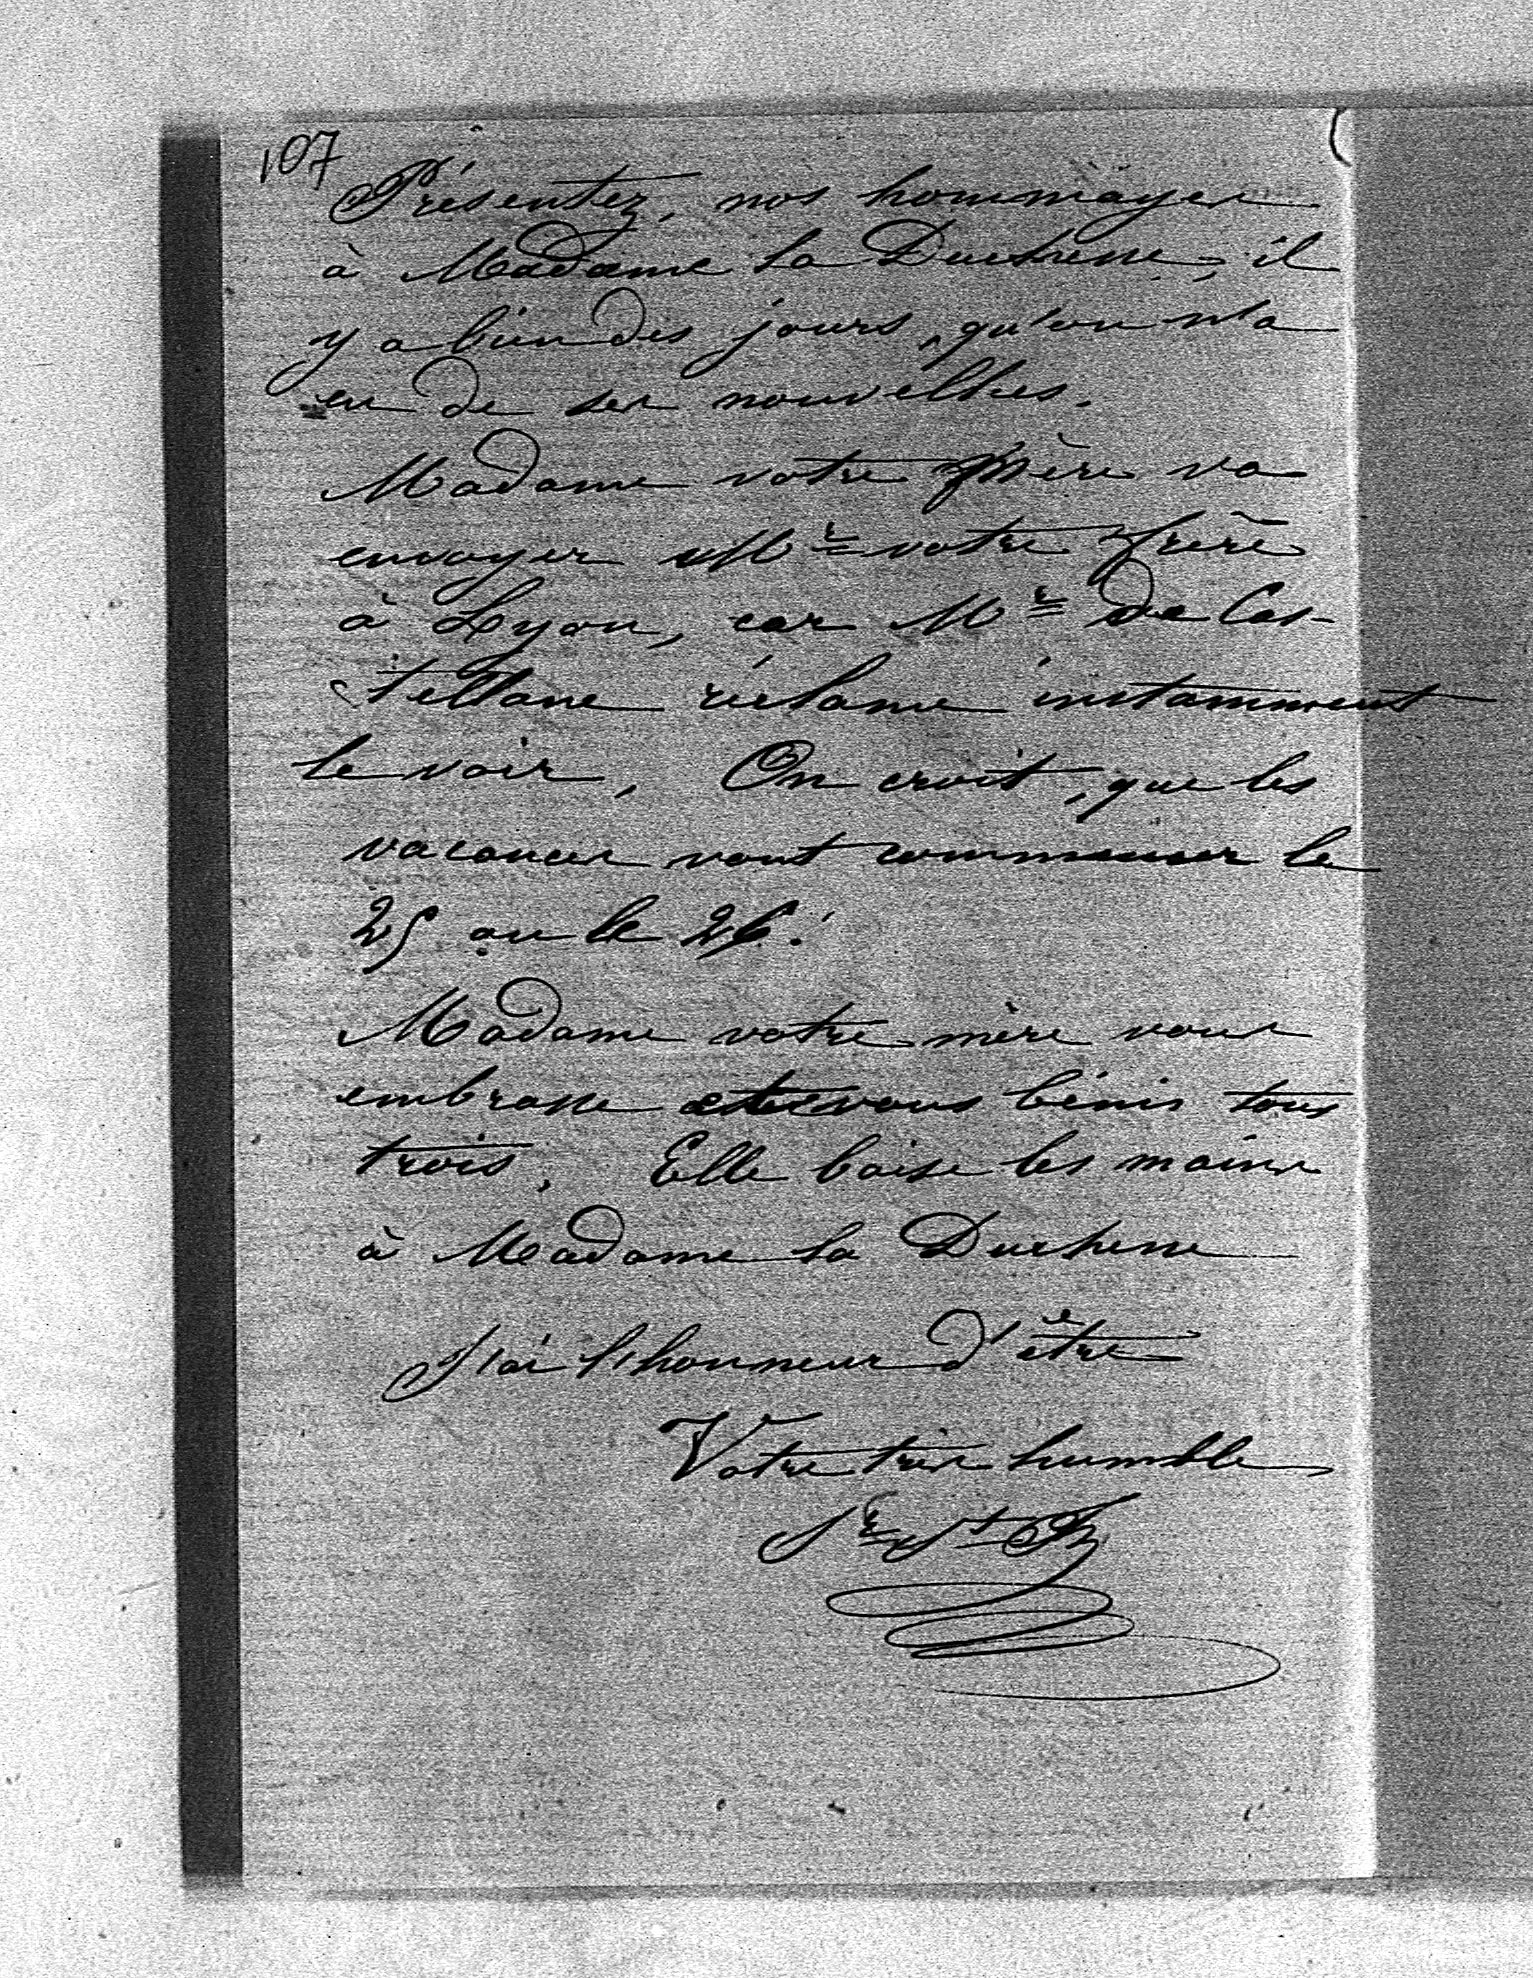 107
Présentez, nos hommages
à Madame la Duchesse, il
y a bien des jours, qu'on n'a
eu de ses nouvelles.
Madame votre Mère va
envoyer Mr votre frère
à Lyon, car Mr de Cas-
tellane réclame instamment
le voir. On croit, que les
vacances vont commencer le
25 ou le 26.
Madame votre mère vous
embrasse et vous bénis tous
trois. Elle baise les mains
à Madame la Duchesse
J'ai l'honneur d'être
Votre très humble